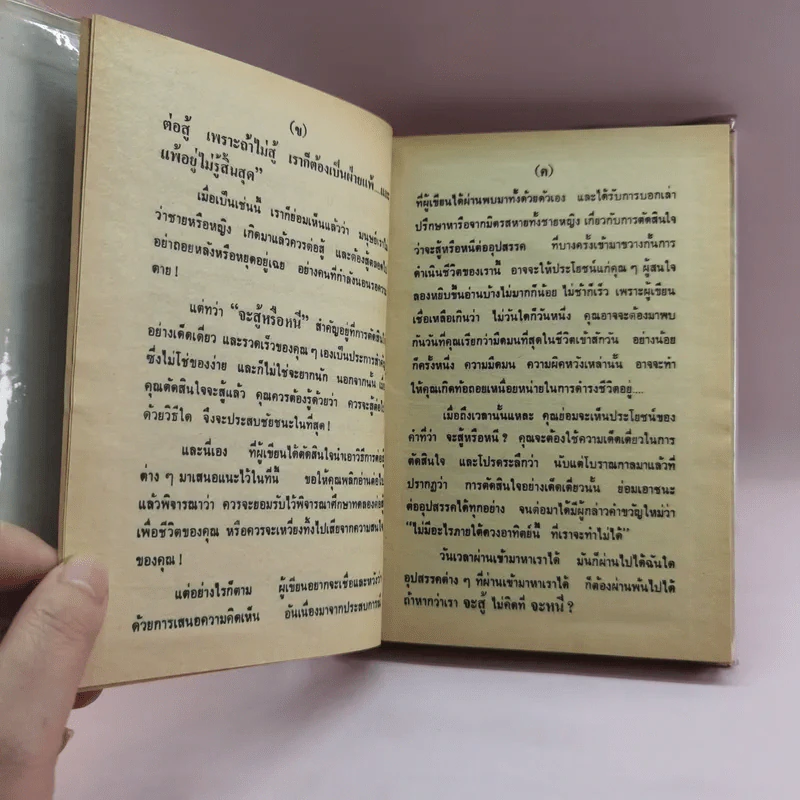 (ข)
ต่อสู้ เพราะถ้าไม่สู้ เราก็ต้องเป็นฝ่ายแพ้...และ
แพ้อยู่ไม่รู้สิ้นสุด”
เมื่อเป็นเช่นนี้ เราก็ย่อมเห็นแล้วว่า มนุษย์เราไม่
ว่าชายหรือหญิง เกิดมาแล้วควรต่อสู้ และต้องสู้ตลอดไป
อย่าถอยหลังหรือหยุดอยู่เฉย อย่างคนที่กำลังนอนรอความ
ตาย!
แต่ทว่า “จะสู้หรือหนี” สำคัญอยู่ที่การตัดสินใจ
อย่างเด็ดเดี่ยว และรวดเร็วของคุณ ๆ เองเป็นประการสำคัญ
ซึ่งไม่ใช่ของง่าย และก็ไม่ใช่จะยากนัก นอกจากนั้น เมื่อ
คุณตัดสินใจจะสู้แล้ว คุณควรต้องรู้ด้วยว่า ควรจะสู้ต่อไป
ด้วยวิธีใด จึงจะประสบชัยชนะในที่สุด!
และนี่เอง ที่ผู้เขียนได้ตัดสินใจนำเอาวิธีการต่อสู้
ต่าง ๆ มาเสนอแนะไว้ในที่นี้ ขอให้คุณพลิกอ่านต่อไป
แล้วพิจารณาว่า ควรจะยอมรับไว้พิจารณาศึกษาทดลองต่อสู้
เพื่อชีวิตของคุณ หรือควรจะเหวี่ยงทิ้งไปเสียจากความสนใจ
ของคุณ!
แต่อย่างไรก็ตาม ผู้เขียนอยากจะเชื่อและหวังว่า
ด้วยการเสนอความคิดเห็น อันเนื่องมาจากประสบการณ์
(ค)
ที่ผู้เขียนได้ผ่านพบมาทั้งด้วยตัวเอง และได้รับการบอกเล่า
ปรึกษาหารือจากมิตรสหายทั้งชายหญิง เกี่ยวกับการตัดสินใจ
ว่าจะสู้หรือหนีต่ออุปสรรค ที่บางครั้งเข้ามาขวางกั้นการ
ดำเนินชีวิตของเรานี้ อาจจะให้ประโยชน์แก่คุณ ๆ ผู้สนใจ
ลองหยิบขึ้นอ่านบ้างไม่มากก็น้อย ไม่ช้าก็เร็ว เพราะผู้เขียน
เชื่อเหลือเกินว่า ไม่วันใดก็วันหนึ่ง คุณอาจจะต้องมาพบ
กับวันที่คุณเรียกว่ามืดมนที่สุดในชีวิตเข้าสักวัน อย่างน้อย
ก็ครั้งหนึ่ง ความมืดมน ความผิดหวังเหล่านั้น อาจจะทำ
ให้คุณเกิดท้อถอยเหนื่อยหน่ายในการดำรงชีวิตอยู่....
เมื่อถึงเวลานั้นแหละ คุณย่อมจะเห็นประโยชน์ของ
คำที่ว่า จะสู้หรือหนี? คุณจะต้องใช้ความเด็ดเดี่ยวในการ
ตัดสินใจ และโปรดระลึกว่า นับแต่โบราณกาลมาแล้วที่
ปรากฏว่า การตัดสินใจอย่างเด็ดเดี่ยวนั้น ย่อมเอาชนะ
ต่ออุปสรรคได้ทุกอย่าง จนต่อมาได้มีผู้กล่าวคำขวัญใหม่ว่า
“ไม่มีอะไรภายใต้ดวงอาทิตย์นี้ ที่เราจะทำไม่ได้”
วันเวลาผ่านเข้ามาหาเราได้ มันก็ผ่านไปได้ฉันใด
อุปสรรคต่าง ๆ ที่ผ่านเข้ามาหาเราได้ ก็ต้องผ่านพ้นไปได้
ถ้าหากว่าเรา จะสู้ ไม่คิดที่ จะหนี?